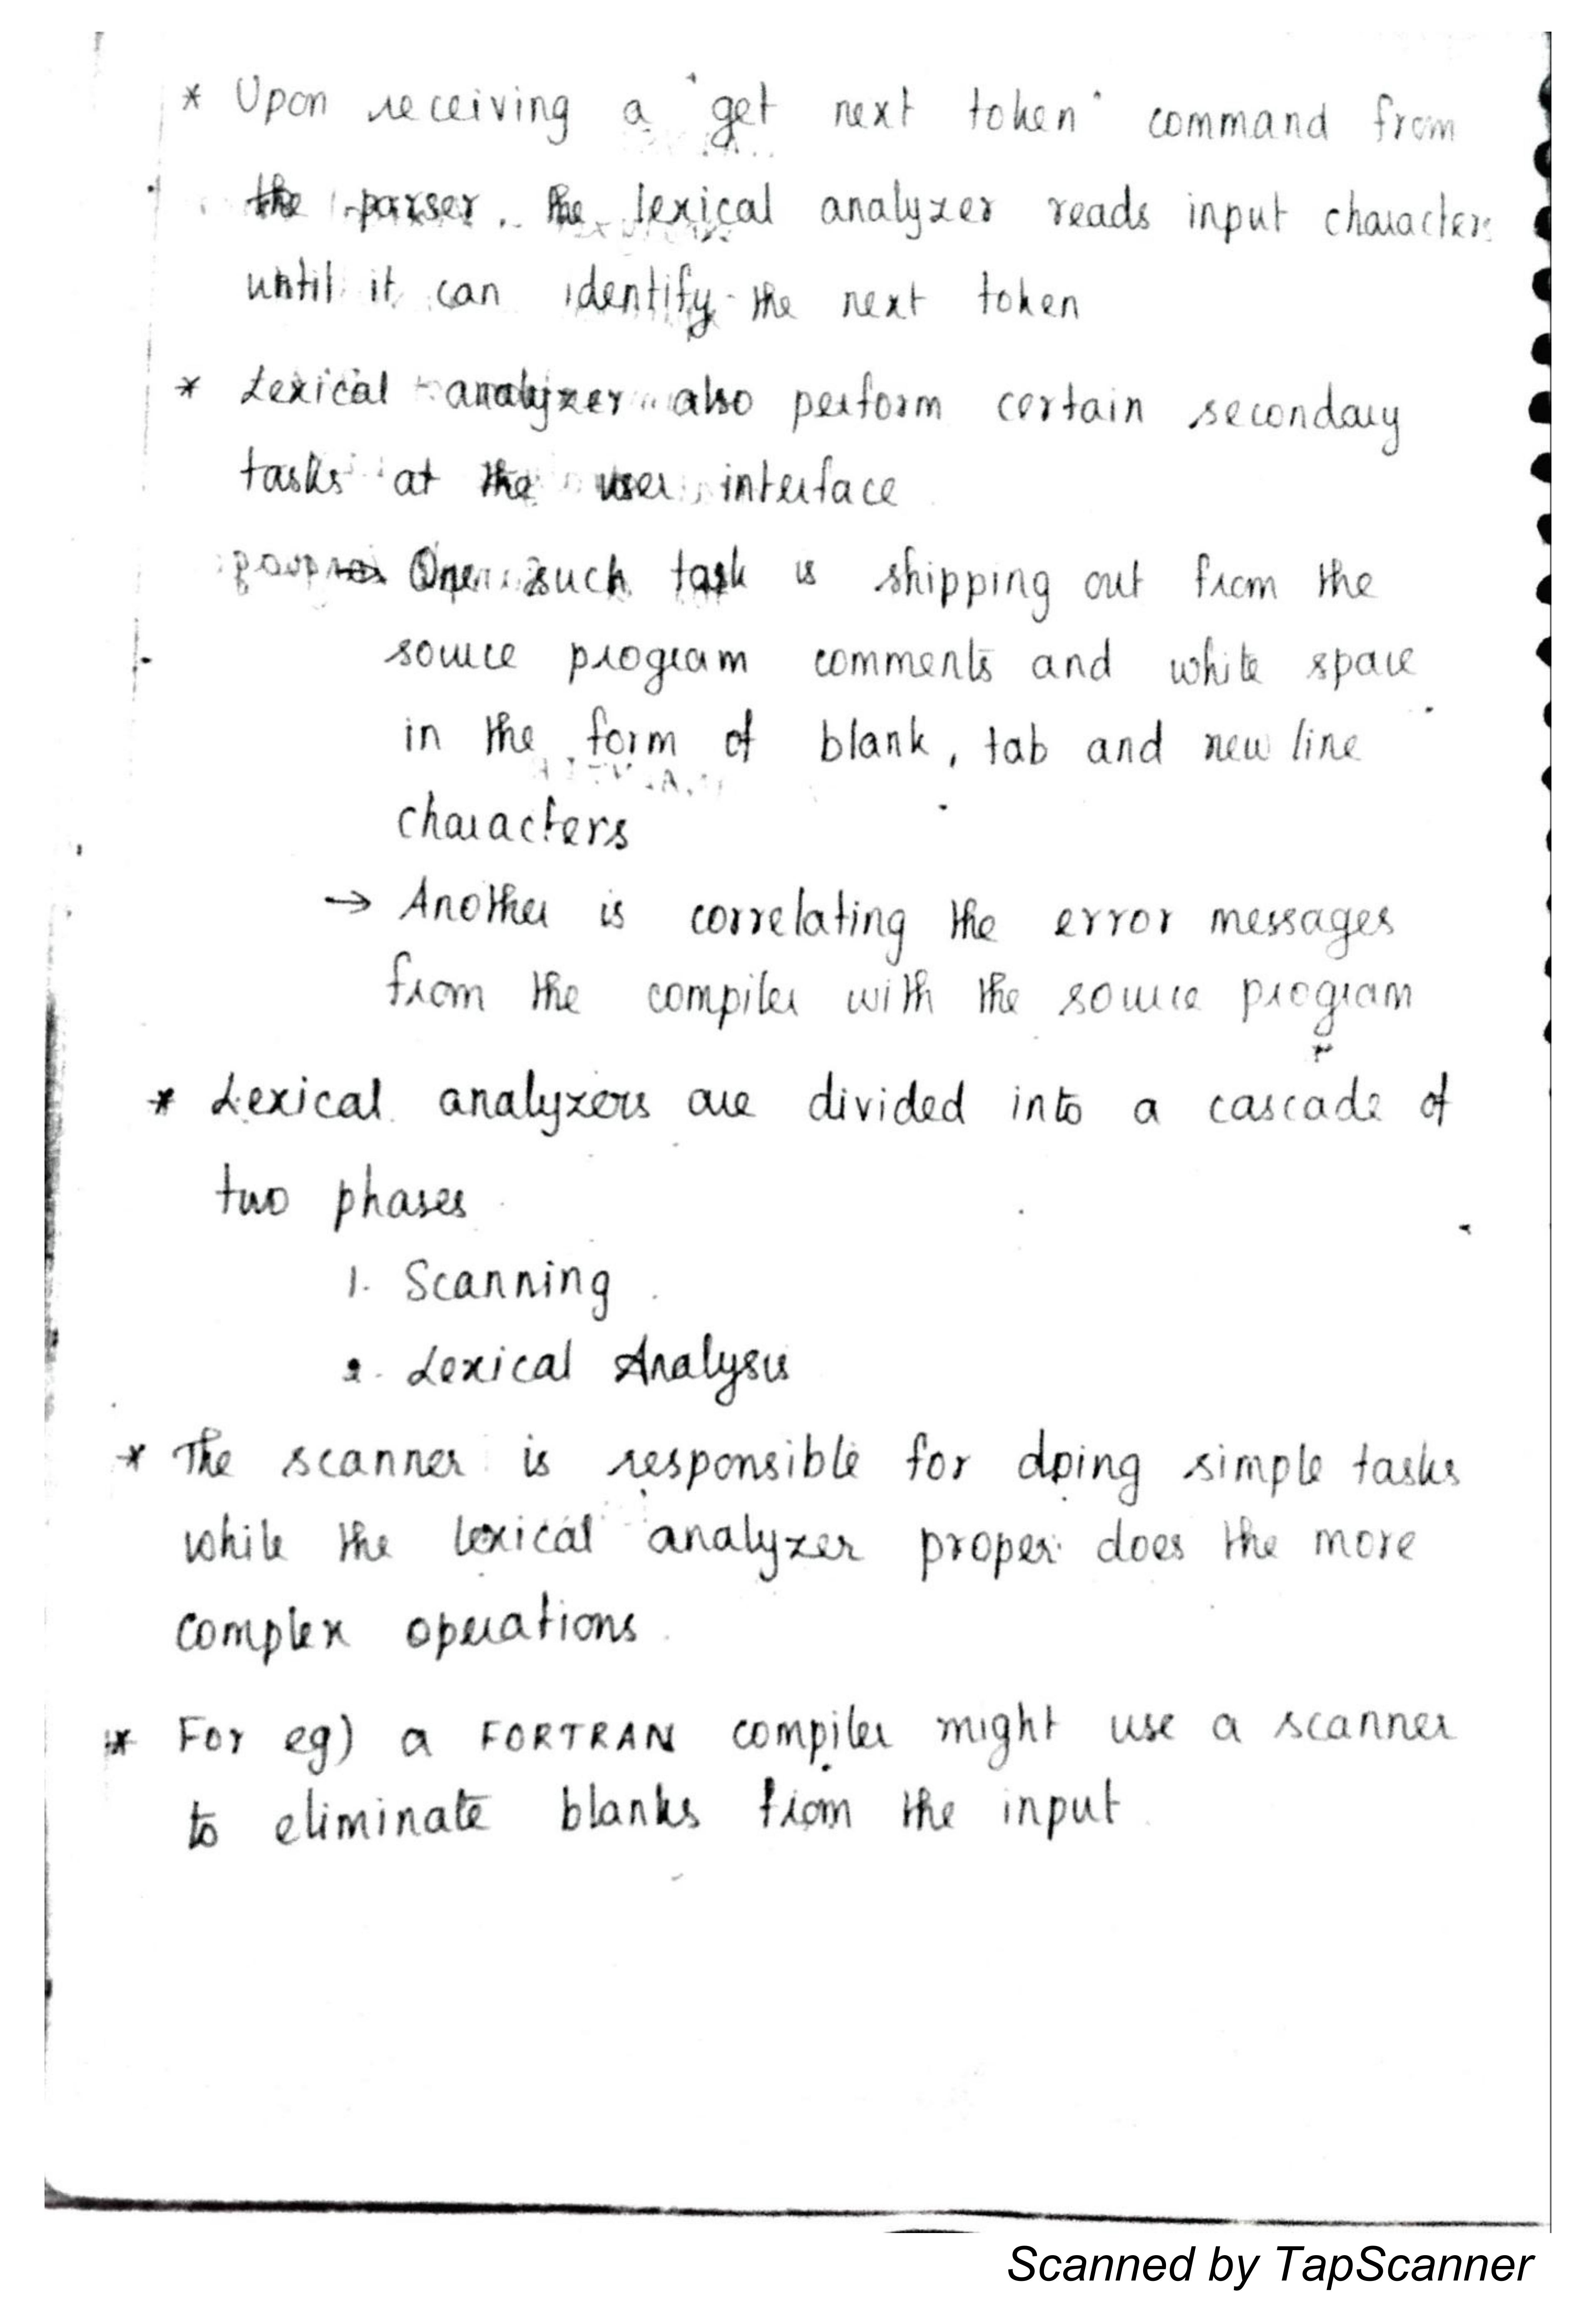 * Upon receiving a "get next token" command from
the parser, the lexical analyzer reads input characters
until it can identify the next token
* Lexical analyzer also perform certain secondary
tasks at the user interface
→ One such task is shipping out from the
source program comments and white space
in the form of blank, tab and new line
characters
→ Another is correlating the error messages
from the compiler with the source program
* Lexical analyzers are divided into a cascade of
two phases
1. Scanning
2. Lexical Analysis
* The scanner is responsible for doing simple tasks
while the lexical analyzer proper does the more
complex operations
* For eg) a FORTRAN compiler might use a scanner
to eliminate blanks from the input
Scanned by TapScanner